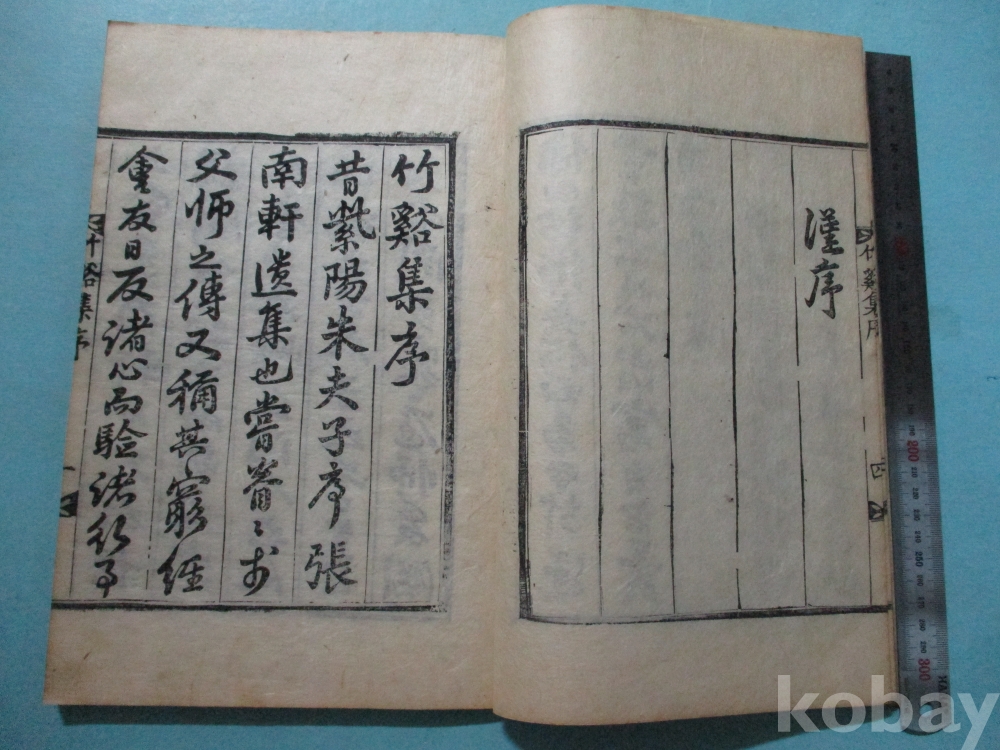 謹序
竹谿集序
四
竹谿集序
昔紫陽朱夫子序張
南軒遺集也嘗眷〻於
父師之傳又稱其窮經
會友日反諸心而驗諸行事
竹谿集序
一
200
250
300
kobay